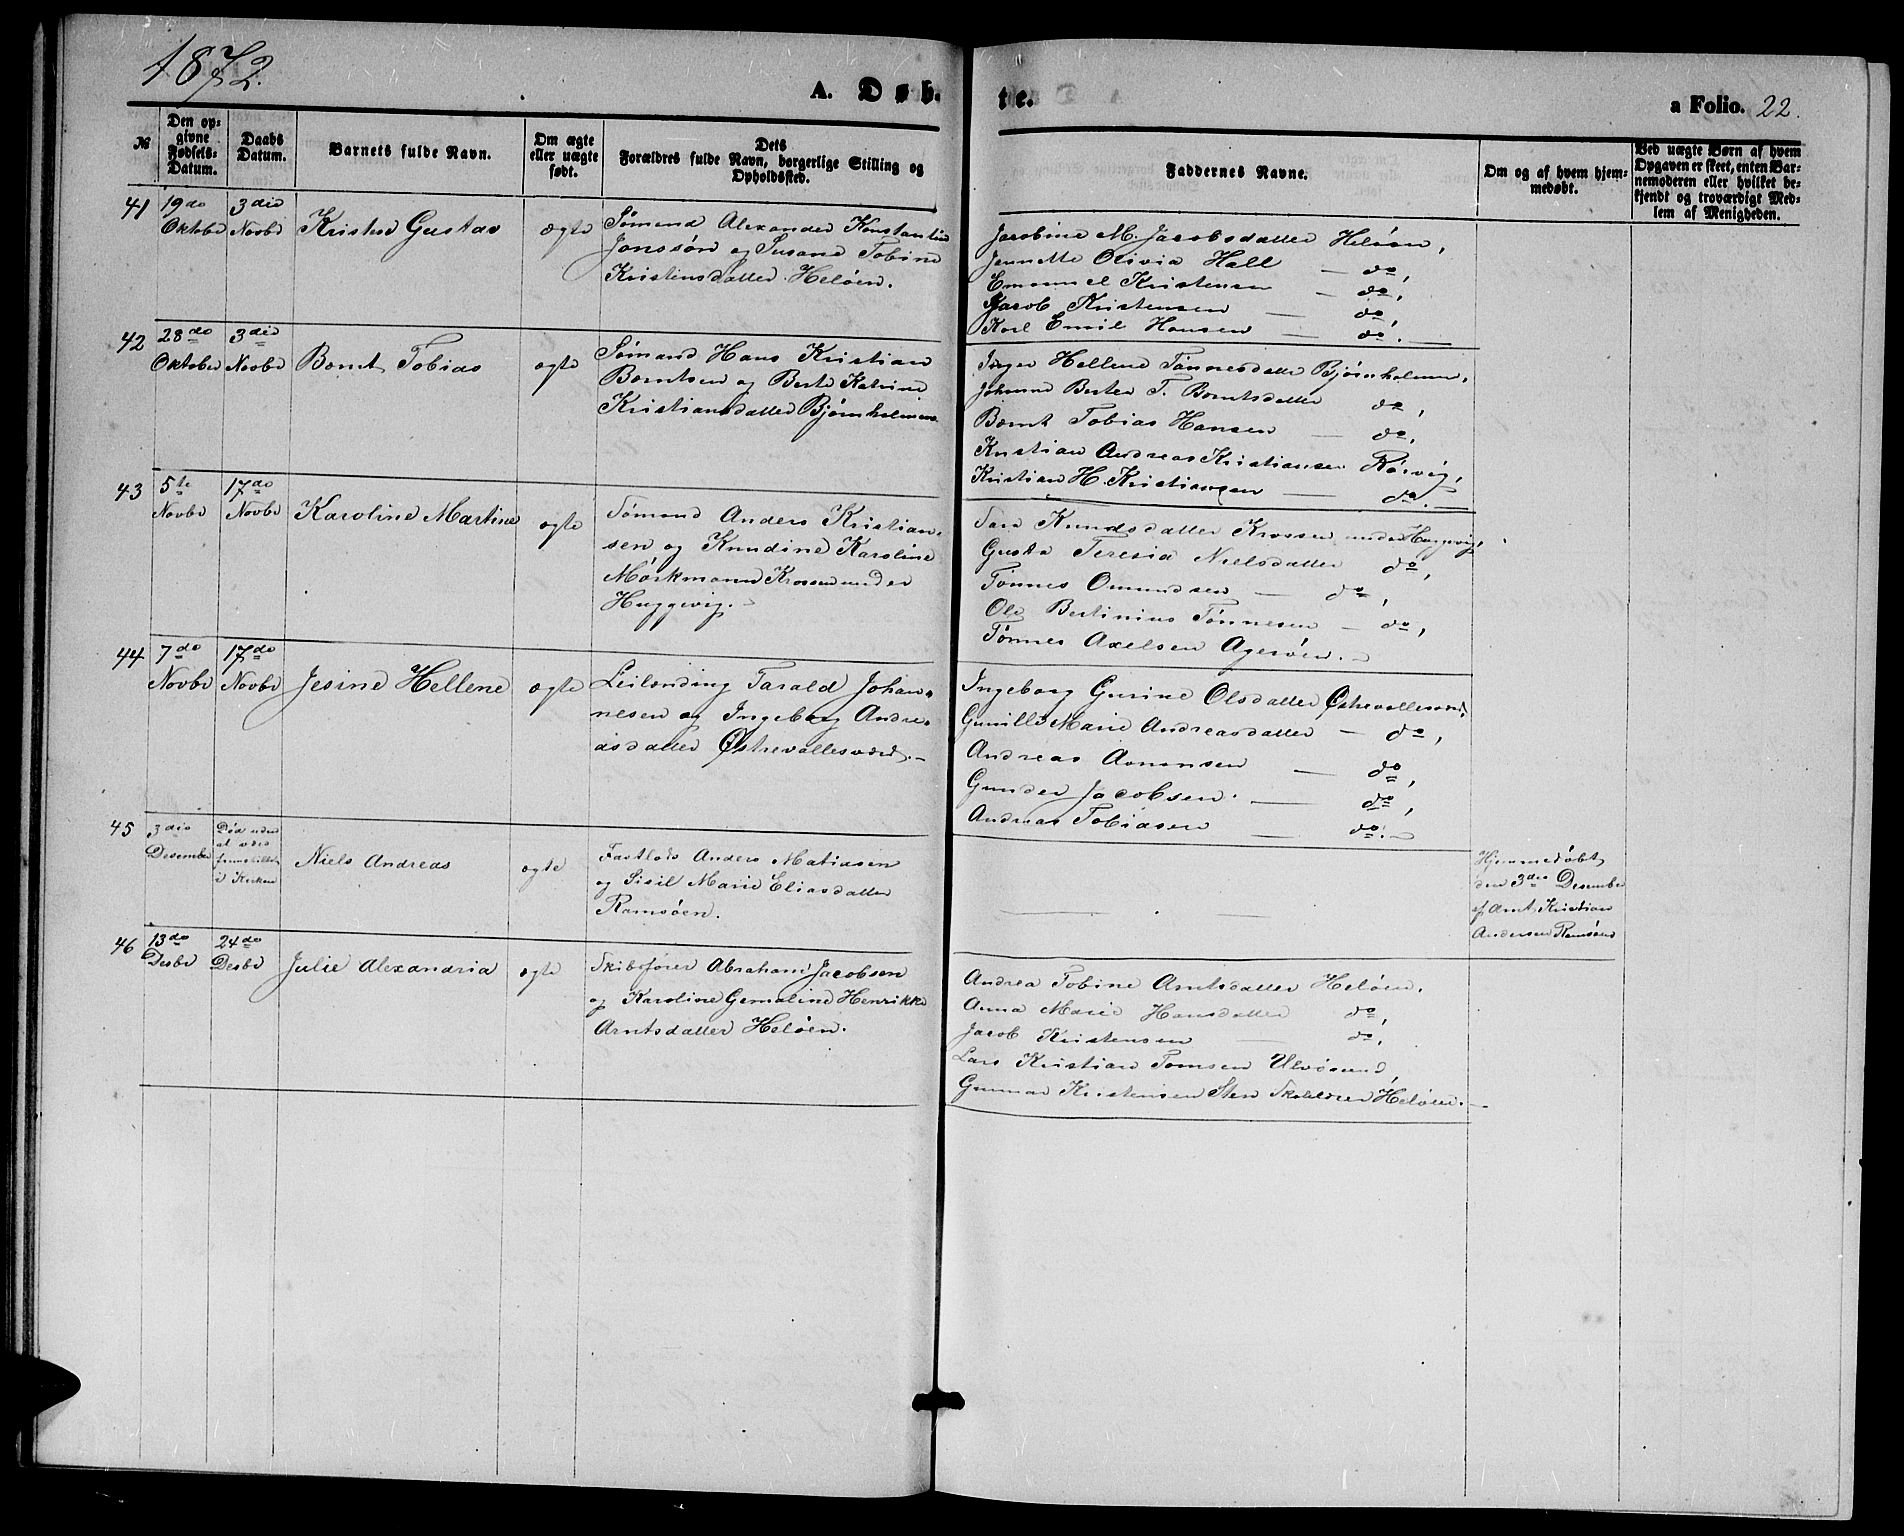 1872.
A. Døb-
te.
a Folio. 22.
№
Den op-
givne
Fødsels-
Datum.
Daabs
Datum.
Barnets fulde Navn.
Om ægte
eller uægte
født.
Dets
Forældres fulde Navn, borgerlige Stilling og
Opholdssted.
Faddernes Navne.
Om og af hvem hjem-
medøbt.
Ved uægte Børn af hvem
Opgaven er skeet, enten Bar-
nemoderen eller hvilket be-
kjendt og troværdigt Med-
lem af Menigheden.
41
19de
Oktober
3die
Novbr
Gustav
ægte
Sømand Alexander Konstantin
Jonssøn og Susane Tobine
Kristensdatter Heløen.
Jacobine M. Jacobsdatter Heløen,
Jennette Olivia Hall — do,
Emanuel Kristensen — do,
Jacob Kristensen — do,
Karl Emil Hansen — do.
42
28de
Oktober
3die
Novbr
Bernt Tobias
ægte
Sømand Hans Kristian
Berntsen og Berte Katrine
Kristiansdatter Bjørnholmen
Inger Hellene Tønnesdatter Bjørnholmen,
Johanne Bertea T. Berntsdatter do,
Bernt Tobias Hansen — do,
Kristian Andreas Kristiansen
Kristian H. Kristiansen — do.
43
5te
Novbr
17de
Novbr
Karoline Martine
ægte
Sømand Anders Kristian-
sen og Knudine Karoline
Mørkmann Krossen under
Huggevig.
Sara Knudsdatter Krossen under Huggevig,
Gusta Teresia Nielsdatter do,
Tønnes Omundsen — do,
Ole Bertinius Tønnesen — do,
Tønnes Axelsen Agerøen.
44
7de
Novbr
17de
Novbr
Jesine Hellene
ægte
Leilænding Tarald Johan-
nesen og Ingeborg Andre-
asdatter Østrevallesverd.
Ingeborg Gurine Olsdatter Østrevallesverd,
Gunille Marie Andreasdatter — do,
Andreas Aanensen — do,
Gunder Jacobsen. — do,
Andreas Tobiasen — do.
45
3die
Desember
Død uden
at være
fremstillet
i Kirken
Niels Andreas
ægte
Anders Matiasen
og Sisil Marie Eliasdatter
Ramsøen.
Hjemmedøbt
den 3die Desember
af Arnt Kristian
Andersen Ramsøen
46
13de
Desbr
24de
Desbr
Julie Alexandria
ægte
Skibsfører Abraham Jacobsen
og Karoline Gemaline Henrikke
Arntsdatter Heløen.
Andrea Tobine Arntsdatter Heløen,
Anna Marie Hansdatter do,
Jacob Kristensen — do,
Lars Kristian Tomsen Ulvøsund,
Gunnar Kristensen Sten Heløen.